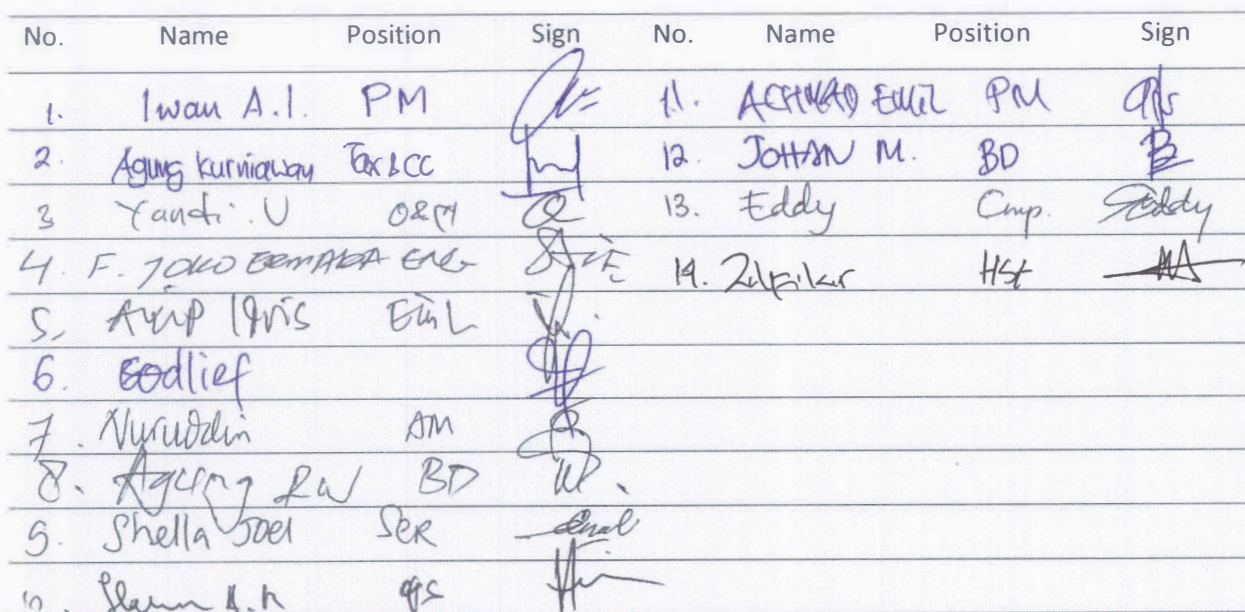 No. Name Position Sign No. Name Position Sign
1. Iwan A.I. PM 11. ACHMAD EMIL PM
2. Agung Kurniawan Tax&CC 12. JOHAN M. BD
3 Yandi. U O&M 13. Eddy Cmp. Eddy
4. F. JOKO ENG 14. Zulfikar
5. Idris
6. Godlief
7. Nuruddin AM
8. Agung RW BD
9. Shella Joel SER
10.